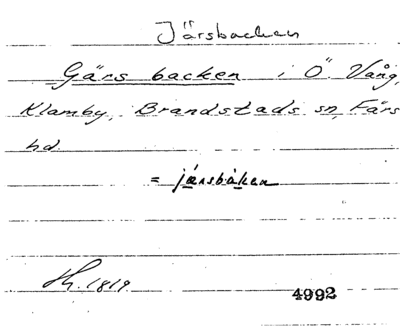 Järsbacken
Gärs backen i Ö. Vång,
Klamby, Brandstads sn, Färs
hd
= järsbaken
1819
4992